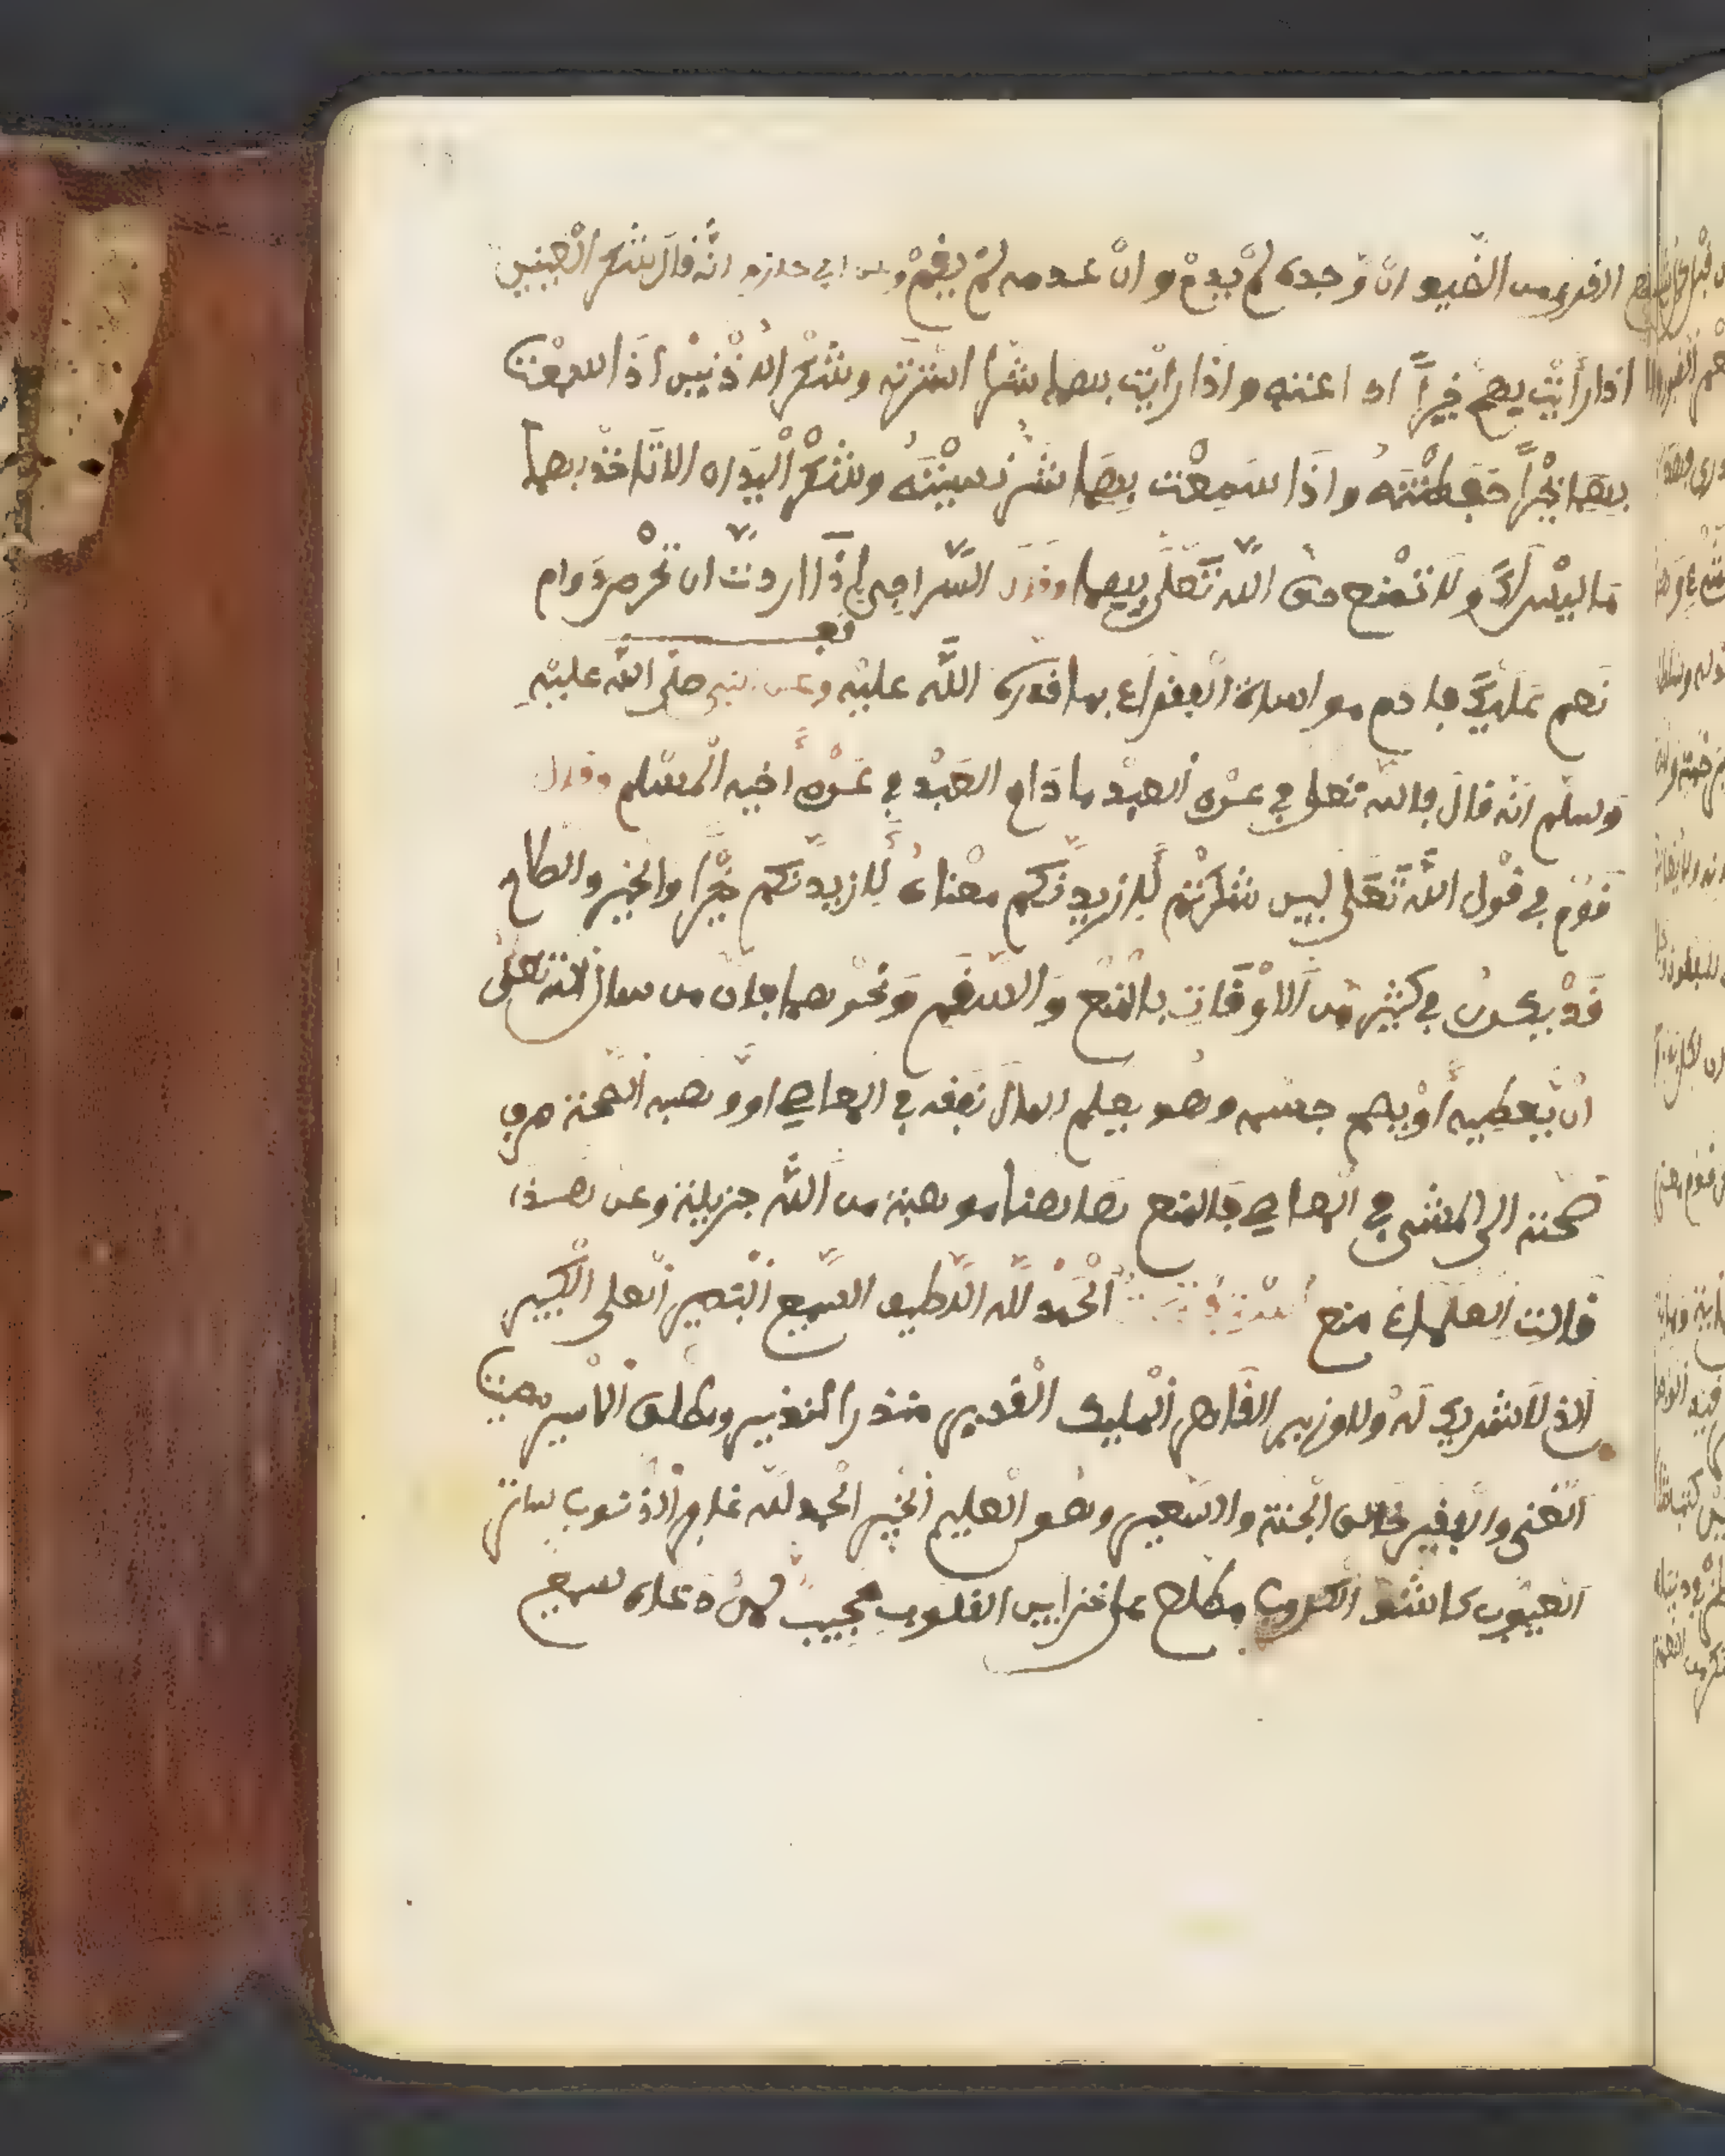 القدر من الضيف ان وجده لم يدم وان عدمه لم يقم وعن ابي حازم انّه قال شكر العينين
اذا رأيت بهم خيراً اعتنته واذا رايت بهما شرّا استرته وشكر الاذنين اذا سمعت
بِهِمَا خيْراً حَفِظْتَهُ وَاذَا سَمِعْت بِهِمَا شر نسيْتَهُ وشكْر اليَدَاه الا تَاخذ بهما
مَا ليْس لَكَ ولا تمْنع حق اللّه تَعَلَى فيهما وقال السّراجي اذَا اردت ان تحْرص دَوام
نعم عَلَيْكَ فادم مواساة الفقراء بما قدره اللَّه عليْه وعن نبي صلى اللّه عليْهِ
وسلّم انّه قال فاللّه تعلى في عوْن العبْد ما دَام العَبْد في عَوْن أخيه المسْلم وقال
قَوْم في قوْل اللّه تَعَلى ليِن شَكَرْتم لَأزيدنّكم معْناه لَأزيدنّكم خيْراً والخير والصلاح
قَدْ يكون في كثيْر من الاوْقَات بالمنْع وَالسقَم وَنحْوهما فان من سال اللّه تعلى
انْ يّعطيه أوْ يصح جسْمه وهو يعلم المال نفقه في المعاصي او وهبه الصحة صرف
صحّته الى المشي في المعاصي فالمنع هاهنا موهبة من اللّه جزيلة وعن هذا
قالت العلماء منع الْحَمْد للّه اللّطيف السّميع البَصير العلي الكَبير
الذي لا شريك لَه ولا وزير القَاهر المليك القَدير منذر النذير ومطلق الاسير
الغني والفقير خالق الجنّة والسّعير وهو العليم الخبير الحمد للّه غافر الذنوب ساتر
العيُوب كاشف الكروب مطلع على خزاين القلوب مجيب لمن دعاه سميع